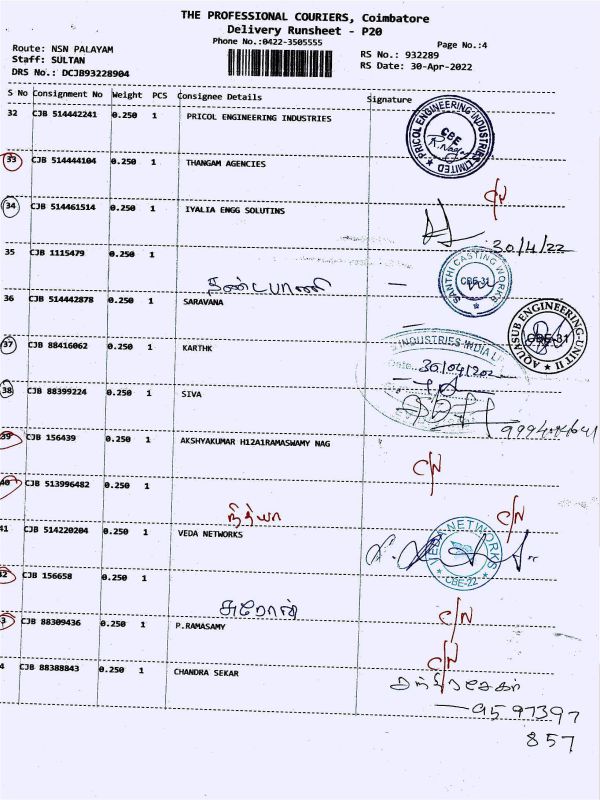 THE PROFESSIONAL COURIERS, Coimbatore
Delivery Runsheet - P20
Phone No.:0422-3505555
Page No.:4
Route: NSN PALAYAM
Staff: SULTAN
DRS No.: DCJB93228904
RS No.: 932289
RS Date: 30-Apr-2022
S No Consignment No Weight PCS Consignee Details Signature
32 CJB 514442241 0.250 1 PRICOL ENGINEERING INDUSTRIES
PRICOL ENGINEERING INDUSTRIES LIMITED
CBE
33 CJB 514444104 0.250 1 THANGAM AGENCIES
C/N
34 CJB 514461514 0.250 1 IYALIA ENGG SOLUTINS
30/4/22
35 CJB 1115479 0.250 1
தண்டபாணி
CASTING WORKS
CBE-31
36 CJB 514442878 0.250 1 SARAVANA
AQUASUB ENGINEERING-UNIT II
CBE-31
37 CJB 88416062 0.250 1 KARTHK
INDUSTRIES INDIA
38 CJB 88399224 0.250 1 SIVA
39 CJB 156439 0.250 1 AKSHYAKUMAR H12A1RAMASWAMY NAG
C/N
40 CJB 513996482 0.250 1
நித்யா
C/N
41 CJB 514220204 0.250 1 VEDA NETWORKS
VEDA NETWORKS
CBE-22
42 CJB 156658 0.250 1
சுரோஷ்
C/N
3 CJB 88309436 0.250 1 P.RAMASAMY
C/N
4 CJB 88388843 0.250 1 CHANDRA SEKAR
சந்திரசேகர்
9597397
857